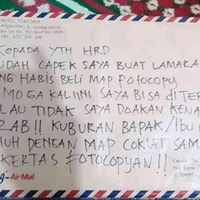 KEPADA YTH HRD
UDAH CAPEK SAYA BUAT LAMARA
NG HABIS BELI MAP FOTOCOPY
MOGA KALI INI SAYA BISA DI TER
LAU TIDAK SAYA DOAKEN KENA
ZAB!! KUBURAN BAPAK/IBU
UH DENGAN MAP COKLAT SAMA
KERTAS FOTOCOPYAN!!
Air Mail